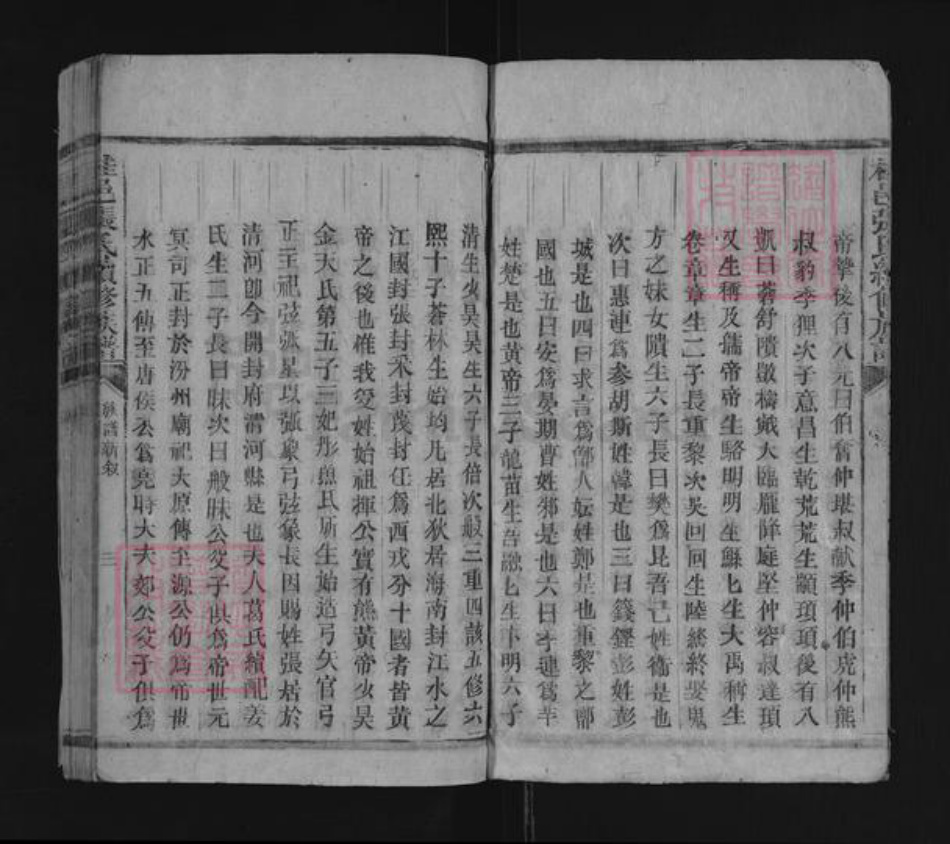 帝摯後有八元曰伯奮仲堪叔献季仲伯虎仲熊
叔豹季狸次子意昌生乾荒荒生顓頊頊後有八
凱曰蒼舒隤敳檮戭大臨龐降庭堅仲容叔達頊
又生稱及
帝帝生駱明明生鯀匕生大禹稱生
卷章章生二子長重黎次吳回回生陸終終娶鬼
方之妹女隤生六子長曰樊為昆吾己姓衛是也
次曰惠連為参胡斯姓韓是也三曰籛鏗彭姓彭
城是也四曰求言為鄶人妘姓鄭是也重黎之
國也五曰安為晏期曹姓邾是也六曰季連為芈
姓楚是也黄帝三子龍苗生吾融匕生卞明六子
清生少昊昊生六子長倍次般三重四該五修六
熙十子蒼林生始均凡居北狄居海南封江水之
江國封張封采封茂封任為西戎分十國者皆黄
帝之後也惟我受姓始祖揮公實有熊黄帝少昊
金天氏第五子三妃彤魚氏所生始造弓矢官弓
正主祀弧弧星以張象弓弦象長因賜姓張居於
清河卽今開封府清河縣是也夫人葛氏續配姜
氏生二子長曰昧次曰般昧公父子俱為帝世元
冥司正封於汾州廟祀太原傳至源公仍為帝世
水正五傳至唐侯公為堯時大夫郊公父子俱為
桂邑張氏續修族譜
族譜新叙
三